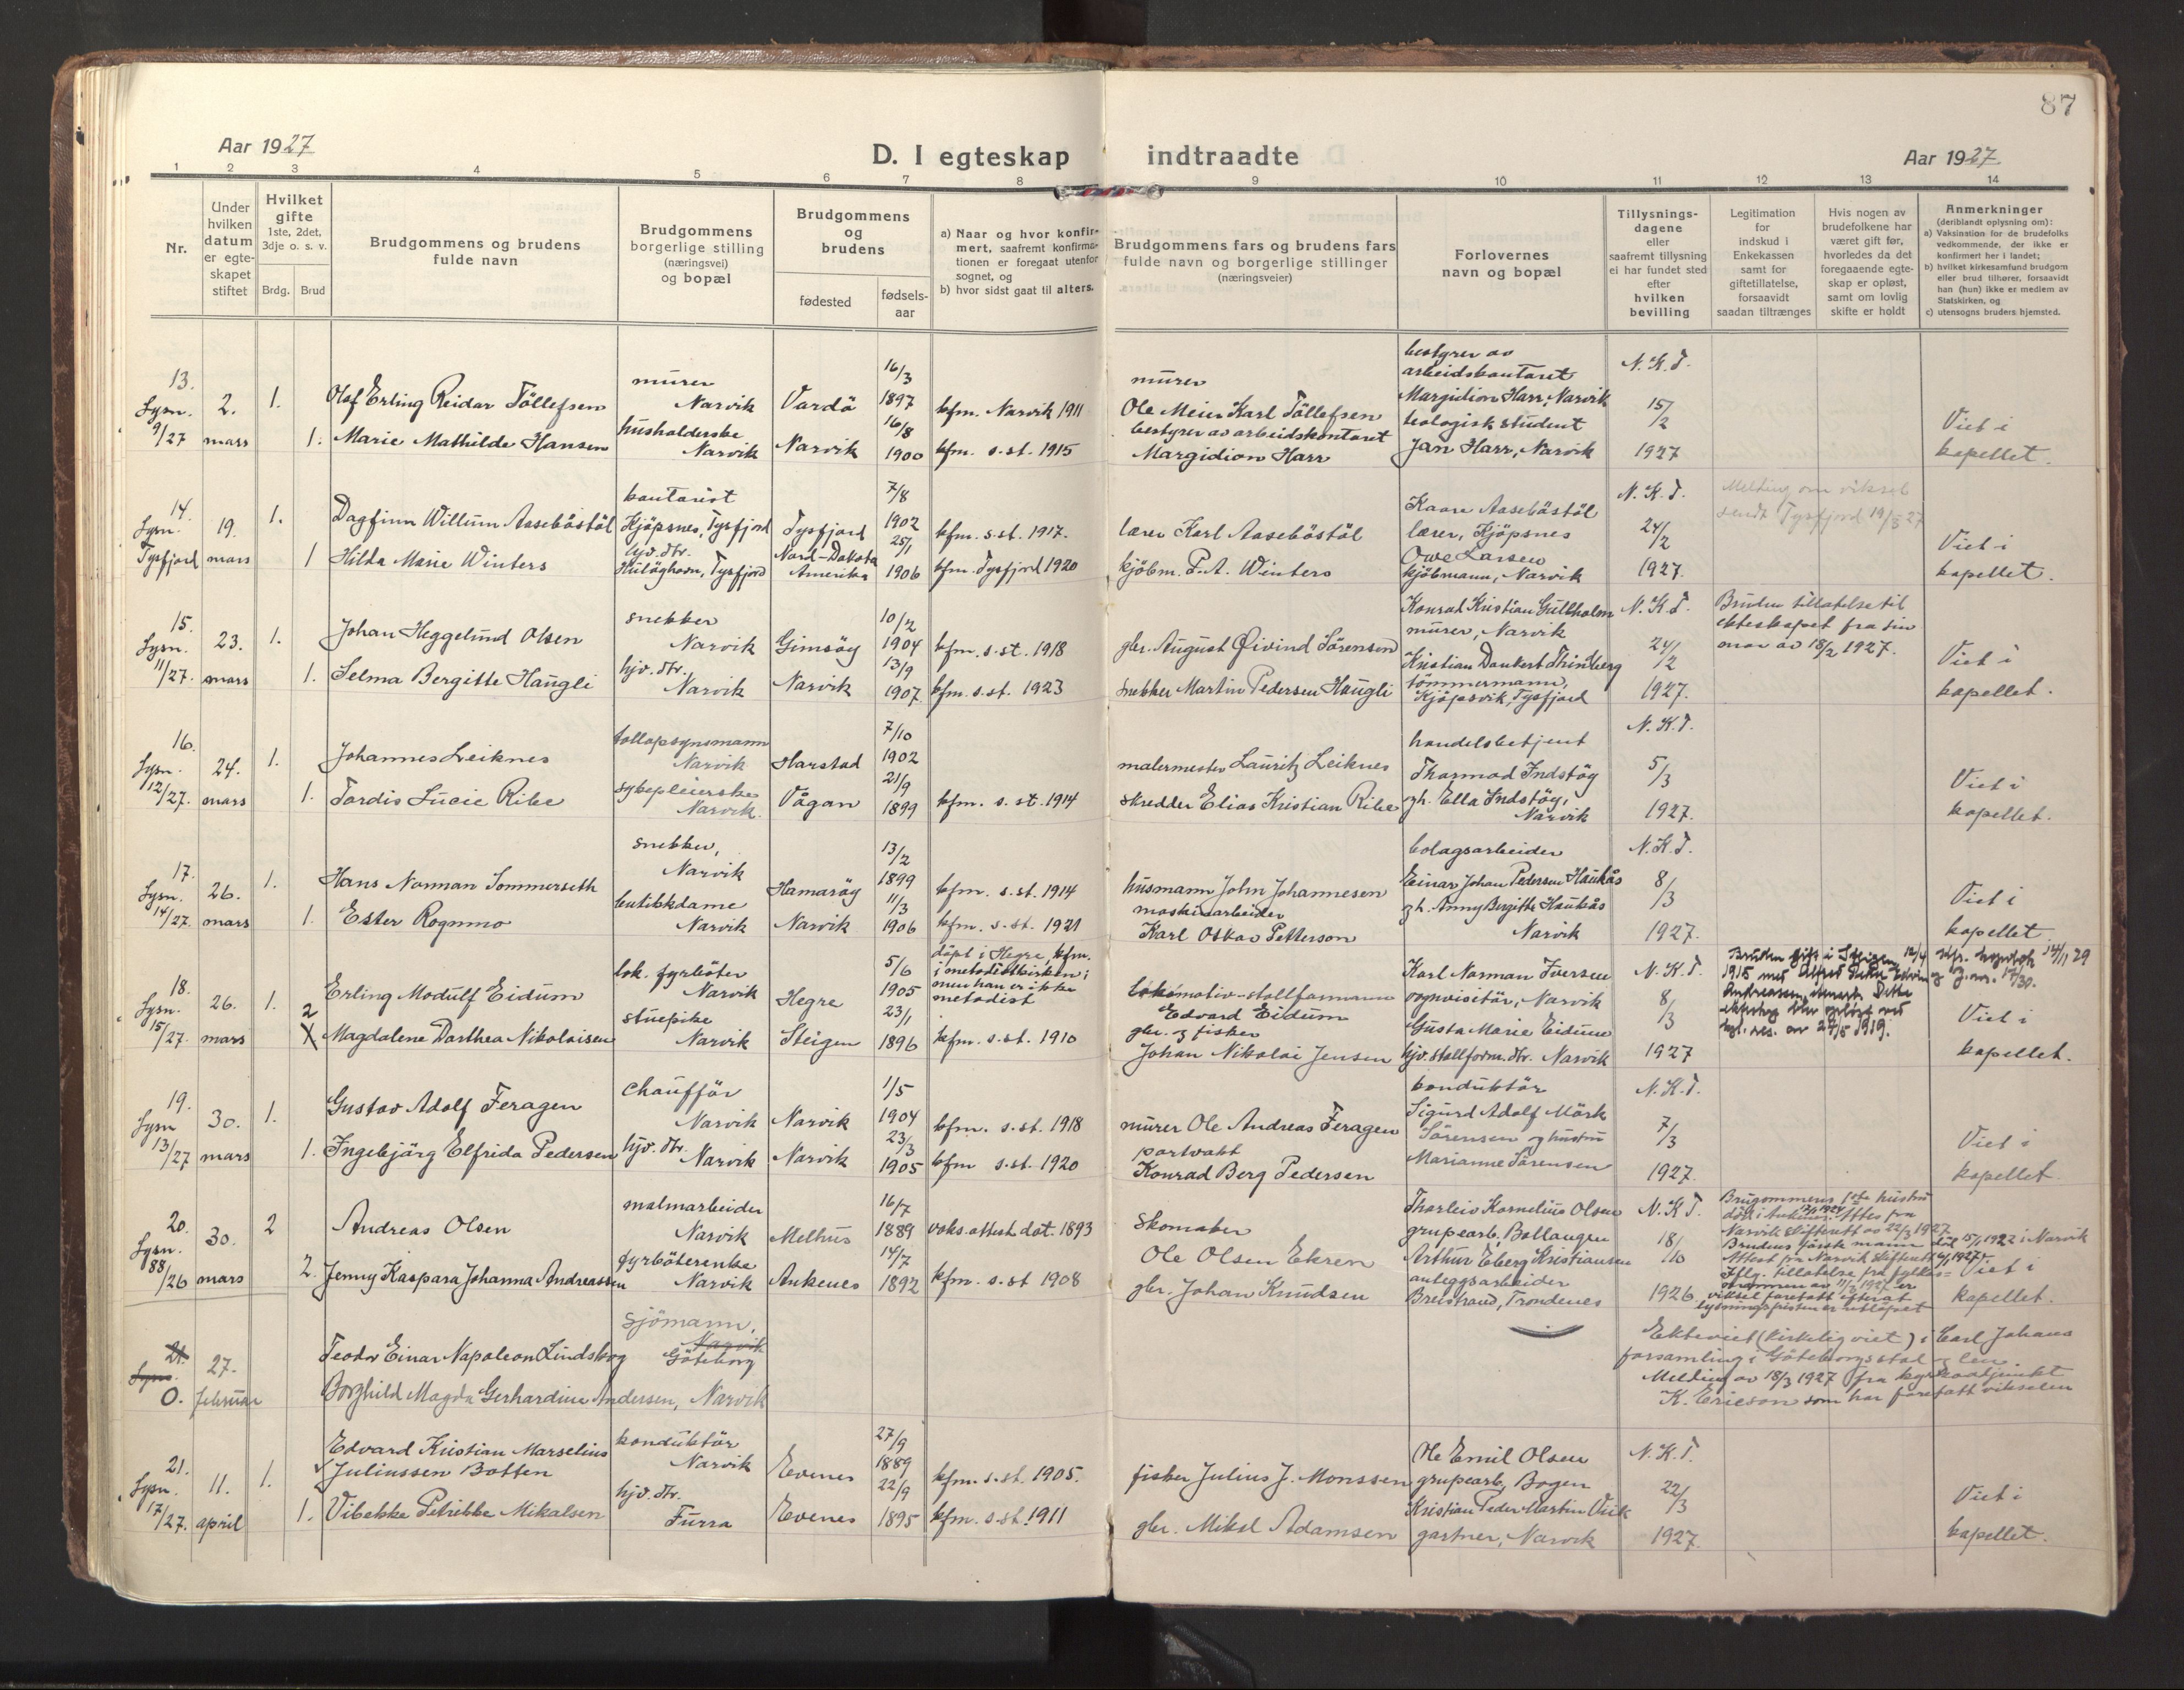 87
Aar 1927
D. I egteskap indtraadte
Aar 1927.
1 2 3 4 5 6 7 8 9 10 11 12 13 14
Nr.
Under hvilken datum er egteskapet stiftet
Hvilket gifte 1ste, 2det, 3dje o. s. v.
Brdg. Brud
Brudgommens og brudens fulde navn
Brudgommens borgerlige stilling (næringsvei) og bopæl
Brudgommens og brudens
fødested
fødsels-aar
a) Naar og hvor konfirmert, saafremt konfirmationen er foregaat utenfor sognet, og
b) hvor sidst gaat til alters.
Brudgommens fars og brudens fars fulde navn og borgerlige stillinger (næringsveier)
Forlovernes navn og bopæl
Tillysningsdagene eller saafremt tillysning ei har fundet sted efter hvilken bevilling
Legitimation for indskud i Enkekassen samt for giftetillatelse, forsaavidt saadan tiltrænges
Hvis nogen av brudefolkene har været gift før, hvorledes da det foregaaende egteskap er opløst, samt om lovlig skifte er holdt
Anmerkninger (deriblandt oplysning om):
a) Vaksination for de brudefolks vedkommende, der ikke er konfirmert her i landet;
b) hvilket kirkesamfund brudgom eller brud tilhører, forsaavidt han (hun) ikke er medlem av Statskirken, og
c) utensogns bruders hjemsted.
13. Lysn. 9/27
2. mars
1. Olaf Erling Reidar Töllefsen
murer Narvik
Vardö
16/3 1897
kfm. Narvik 1911
murer Ole Meier Karl Töllefsen
bestyrer av arbeidskontoret Margidion Harr, Narvik
N.K.T. 15/2 1927
Viet i kapellet.
1. Marie Mathilde Hansen
husholderske Narvik
Narvik
16/8 1900
kfm. s.st. 1915
bestyrer av arbeidskontoret Margidion Harr
teologisk student Jan Harr, Narvik
14. Lysn. Tysfjord
19. mars
1. Dagfinn Willum Aasebøstöl
kontorist Kjöpsnes, Tysfjord
Tysfjord
7/8 1902
kfm. s.st. 1917.
lærer Karl Aasebøstöl
Kaare Aasebøstöl lærer, Kjöpsnes
N.K.T. 24/2 1927.
Melding om viksel sendt Tysfjord 19/3 27
Viet i kapellet.
1 Hilda Marie Winters
hjv. dtr. Hulöghavn, Tysfjord
Nord-Dakota Amerika
25/1 1906
kfm. Tysfjord 1920
kjöbm. P.A. Winters
Owe Larsen kjöbmann, Narvik
15. Lysn. 11/27.
23. mars
1. Johan Heggelund Olsen
snekker Narvik
Gimsöy
10/2 1904
kfm. s.st. 1918
gbr. August Øivind Sörensen
Konrad Kristian Gullholm murer, Narvik
N.K.T. 24/2 1927.
Bruden tillatelse til ekteskapet fra sin mor av 18/2 1927.
Viet i kapellet.
1. Selma Bergitte Haugli
hjv. dtr. Narvik
Narvik
13/9 1907
kfm. s.st. 1923
snekker Martin Pedersen Haugli
Kristian Dankert Thinberg tömmermann, Kjöpsvik, Tysfjord
16. Lysn. 12/27.
24. mars
1. Johannes Leiknes
tollopsynsmann Narvik
Harstad
7/10 1902
malermester Lauritz Leiknes
handelsbetjent Thormod Indstöy
N.K.T. 5/3 1927.
Viet i kapellet.
1. Tordis Lucie Ribe
sykepleierske Narvik.
Vågan
21/9 1899
kfm. s. st. 1914
skredder Elias Kristian Ribe
gh. Ella Indstöy, Narvik
17. Lysn. 14/27.
26. mars
1. Hans Norman Sommerseth
snekker, Narvik
Hamaröy
13/2 1899
kfm. s.st. 1914
husmann John Johannesen
bolagsarbeider Einar Johan Pedersen Haukås
N.K.T. 8/3 1927.
Viet i kapellet
1. Ester Rognmo
butikkdame Narvik
Narvik
11/3 1906
kfm. s.st. 1921
maskinarbeider Karl Oskar Petterson
gh. Anny Bergitte Haukås Narvik
18. Lysn. 15/27.
26. mars
1. Erling Modulf Eidum
lok. fyrböter Narvik
Hegre
5/6 1905
döpt i Hegre, kfm. i metodistkirken; men han er ikke metodist
lokomotiv-stallformann Edvard Eidum
Karl Norman Iversen vognvisitör, Narvik
N.K.T. 8/3 1927
Bruden gift i Steigen 12/4 1915 med Alfred Peter Edvin Andreassen, Dette ekteskap blev oplöst ved kgl. res. av 27/5 1919.
Viet i kapellet.
2 Magdalene Dorthea Nikolaisen
stuepike Narvik
Steigen
23/1 1896
kfm. s.st. 1910
gbr. og fisker Johan Nikolai Jensen
Gusta Marie Eidum hjv. stallform. dtr. Narvik
19. Lysn 13/27
30. mars
1. Gustav Adolf Feragen
chaufför Narvik
Narvik
1/5 1904
kfm. s.st. 1918
murer Ole Andreas Feragen
konduktör Sigurd Adolf Mörk Sörensen og hustru
N.K.T. 7/3 1927
Viet i kapellet.
1. Ingebjörg Elfrida Pedersen
hjv. dtr. Narvik
Narvik
23/3 1905
kfm s.st. 1920
portvakt Konrad Berg Pedersen
Marianne Sörensen
20. Lysn. 88/26
30. mars
2 Andreas Olsen
malmarbeider Narvik
Melhus
16/7 1889
vaks. attest dat. 1893
skomaker Ole Olsen Ekren
Thorleiv Kornelius Olsen grupearb, Ballangen
N.K.T. 18/10 1926
Brudens förste mann död 15/1 1922 i Narvik
Viet i kapellet.
2. Jenny Kaspara Johanna Andreassen
fyrböterenke Narvik
Ankenes
14/7 1892
kfm. s.st 1908
gbr. Johan Knudsen
Arthur Eberg Kristiansen anleggsarbeider Breistrand, Trondenes
21. Lysn. 0.
27. februar
Teodor Einar Napoleon Lindskog
sjömann, Narvik Göteborg
Borghild Magda Gerhardine Andersen, Narvik
Ekteviet (kirkelig viet) i Carl Johans
forsamling i Göteborgs stad og len.
Melding av 18/3 1927 fra kyrkoadjunkt
K. Ericson som har foretatt vikselen
21. Lysn. 17/27.
11. april
1. Edvard Kristian Marselius Juliussen Botten
konduktör Narvik
Evenes
27/9 1889
kfm. s.st. 1905.
fisker Julius J. Monssen
Ole Emil Olsen grupearb, Bogen
N.K.T. 22/3 1927.
Viet i kapellet.
1. Vibekke Petrikke Mikalsen
hjv. dtr. Furra
Evenes
22/9 1895
kfm. s.st. 1911
gbr. Mikal Adamsen
Kristian Peder Martin Vik gartner, Narvik